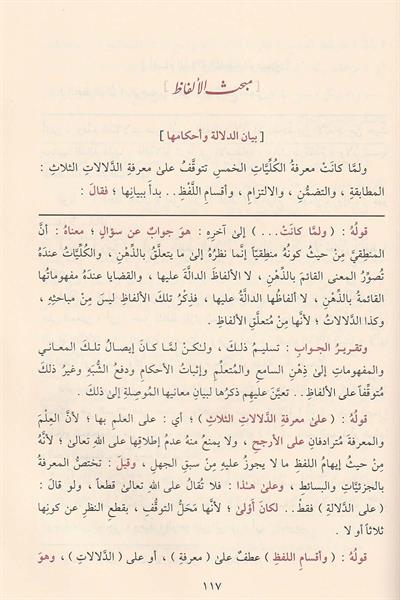 [ مبحث الألفاظ ]
[ بيان الدلالة وأحكامها ]
ولمَّا كانَتْ معرفةُ الكُلِّيَّاتِ الخمسِ تتوقَّفُ علىٰ معرفةِ الدَّلالاتِ الثلاثِ :
المطابقةِ ، والتضمُّنِ ، والالتزامِ ، وأقسامِ اللَّفْظِ.. بدأَ ببيانِها ؛ فقالَ :
قولُهُ : ( ولمَّا كانَتْ... ) إلىٰ آخرِهِ : هوَ جوابٌ عن سؤالٍ ؛ معناهُ : أنَّ
المنطقيَّ مِنْ حيثُ كونُهُ منطقيّاً إنَّما نظرُهُ إلىٰ ما يتعلَّقُ بالذِّهْنِ ، والكُلِّيَّاتُ عندَهُ
تُصوِّرُ المعنى القائمَ بالذِّهْنِ ، لا الألفاظَ الدالَّةَ عليها ، والقضايا عندَهُ مفهوماتُها
القائمةُ بالذِّهْنِ ، لا ألفاظُها الدالَّةُ عليها ، فذِكْرُ تلكَ الألفاظِ ليسَ مِنْ مباحثِهِ ،
وكذا الدَّلالاتُ ؛ لأنَّها مِنْ مُتعلَّقِ الألفاظِ .
وتقريرُ الجوابِ : تسليمُ ذلكَ ، ولكنْ لمَّا كانَ إيصالُ تلكَ المعاني
والمفهوماتِ إلىٰ ذِهْنِ السامعِ والمُتعلِّمِ وإثباتُ الأحكامِ ودفعُ الشُّبَهِ وغيرُ ذلكَ
مُتوقِّفاً على الألفاظِ.. تعيَّنَ عليهم ذكرُها لبيانِ معانيها المُوصِلةِ إلىٰ ذلكَ .
قولُهُ : ( علىٰ معرفةِ الدَّلالاتِ الثلاثِ ) ؛ أي : على العلمِ بها ؛ لأنَّ العِلْمَ
والمعرفةَ مُترادفانِ على الأرجحِ ، ولا يمنعُ منهُ عدمُ إطلاقِها على اللهِ تعالىٰ ؛ لأنَّهُ
مِنْ حيثُ إيهامُ اللفظِ ما لا يجوزُ عليهِ مِنْ سبقِ الجهلِ ، وقيلَ : تختصُّ المعرفةُ
بالجزئيَّاتِ والبسائطِ ، وعلىٰ هٰذا : فلا تُقالُ على اللهِ تعالىٰ قطعاً ، ولو قالَ :
( على الدَّلالةِ ) فقطْ.. لكانَ أَوْلىٰ ؛ لأنَّها مَحَلُّ التوقُّفِ ، بقطعِ النظرِ عن كونِها
ثلاثاً أو لا .
قولُهُ : ( وأقسامِ اللفظِ ) عطفٌ علىٰ ( معرفةِ ) ، أو على ( الدَّلالاتِ ) ، وهوَ
١١٧